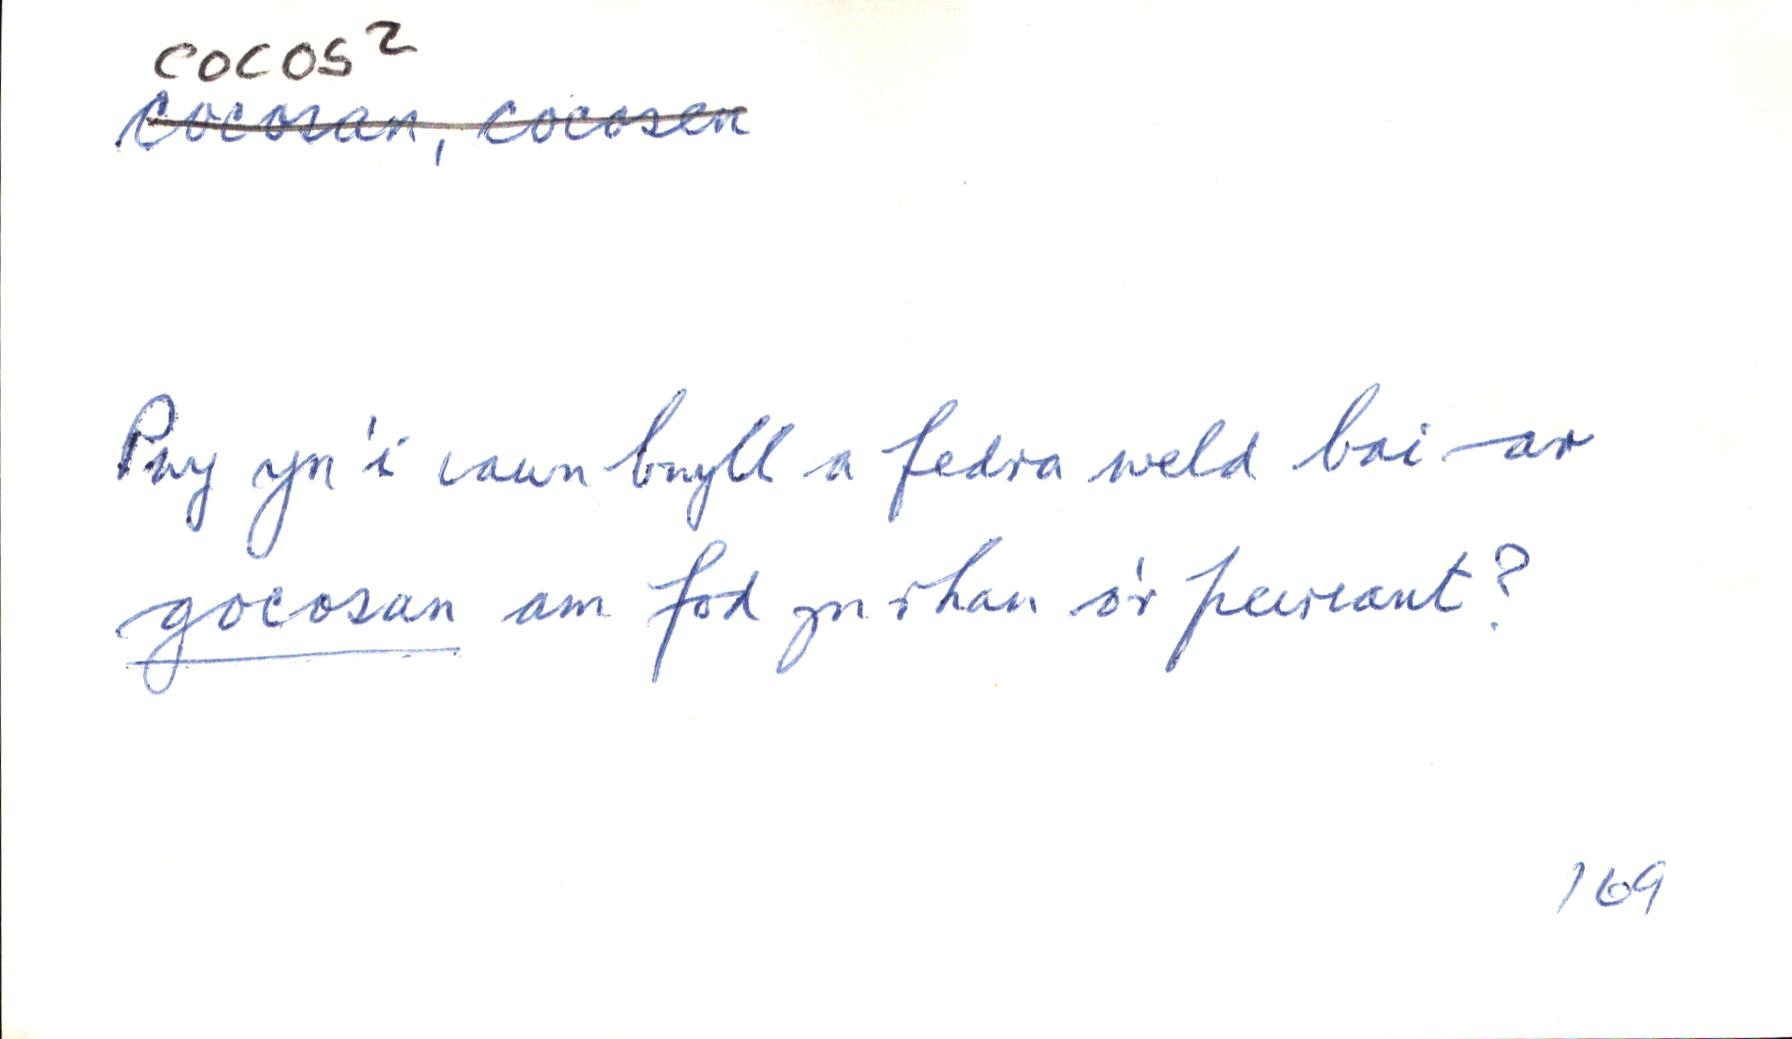 cocos²
cocosan, cocosen
Pwy yn 'i iawn bwyll a fedra weld bai ar
gocosan am fod yn rhan o'r peiriant?
169